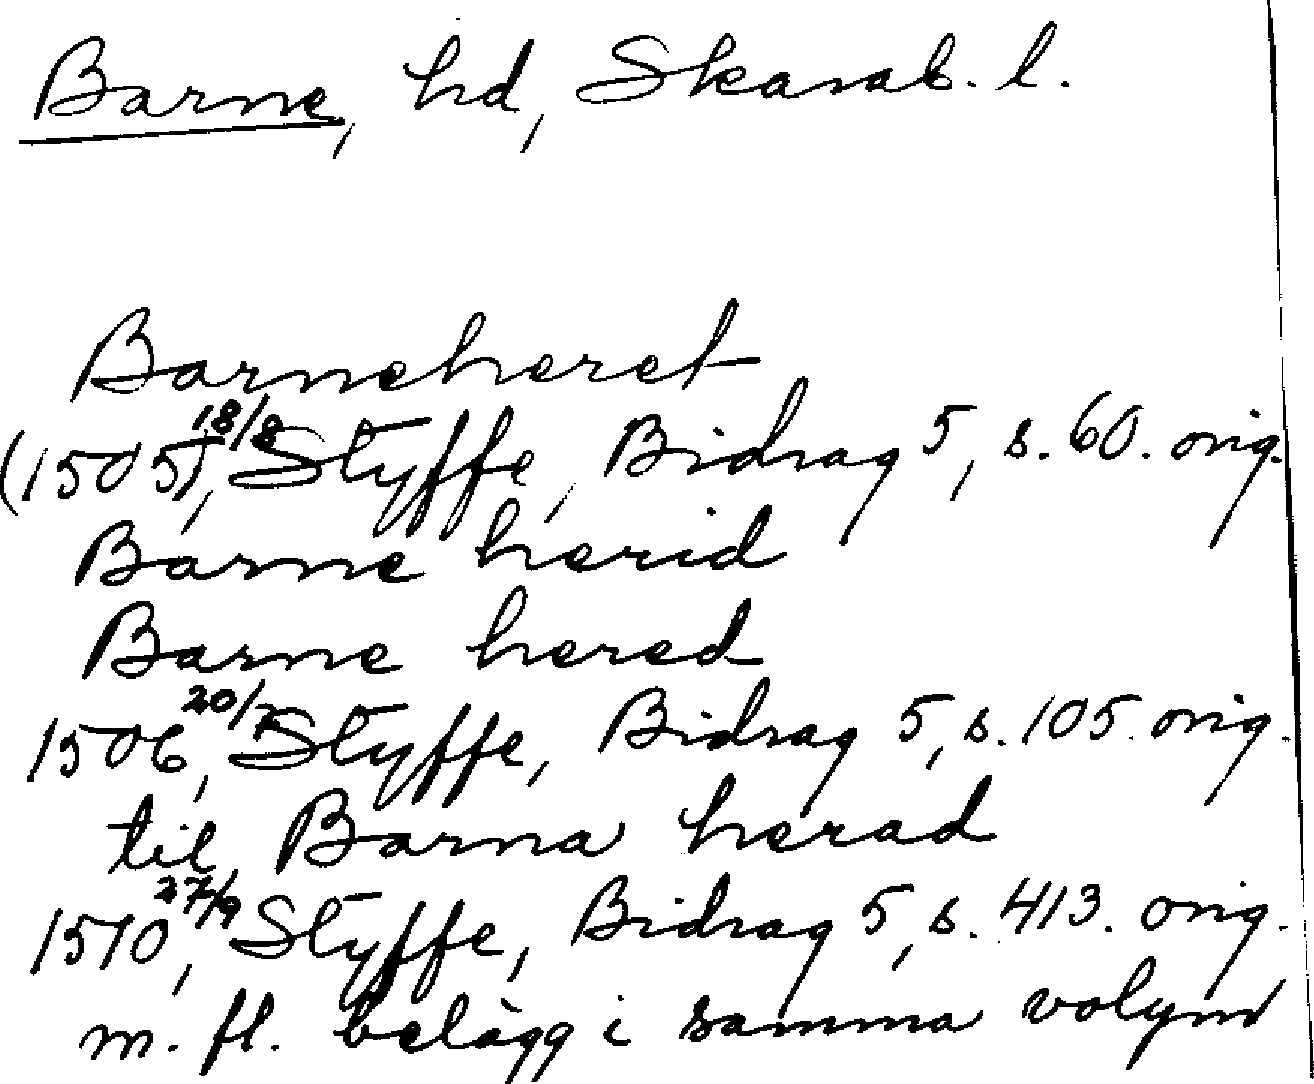 Barne, hd, Skarab. l.
Barneheret
(1505) 18/8, Styffe, Bidrag 5, s. 60. orig.
Barne herid
Barne hered
1506 20/2, Styffe, Bidrag 5, s. 105. orig.
til Barna herad
1510 27/9, Styffe, Bidrag 5, s. 413. orig.
m. fl. belägg i samma volym